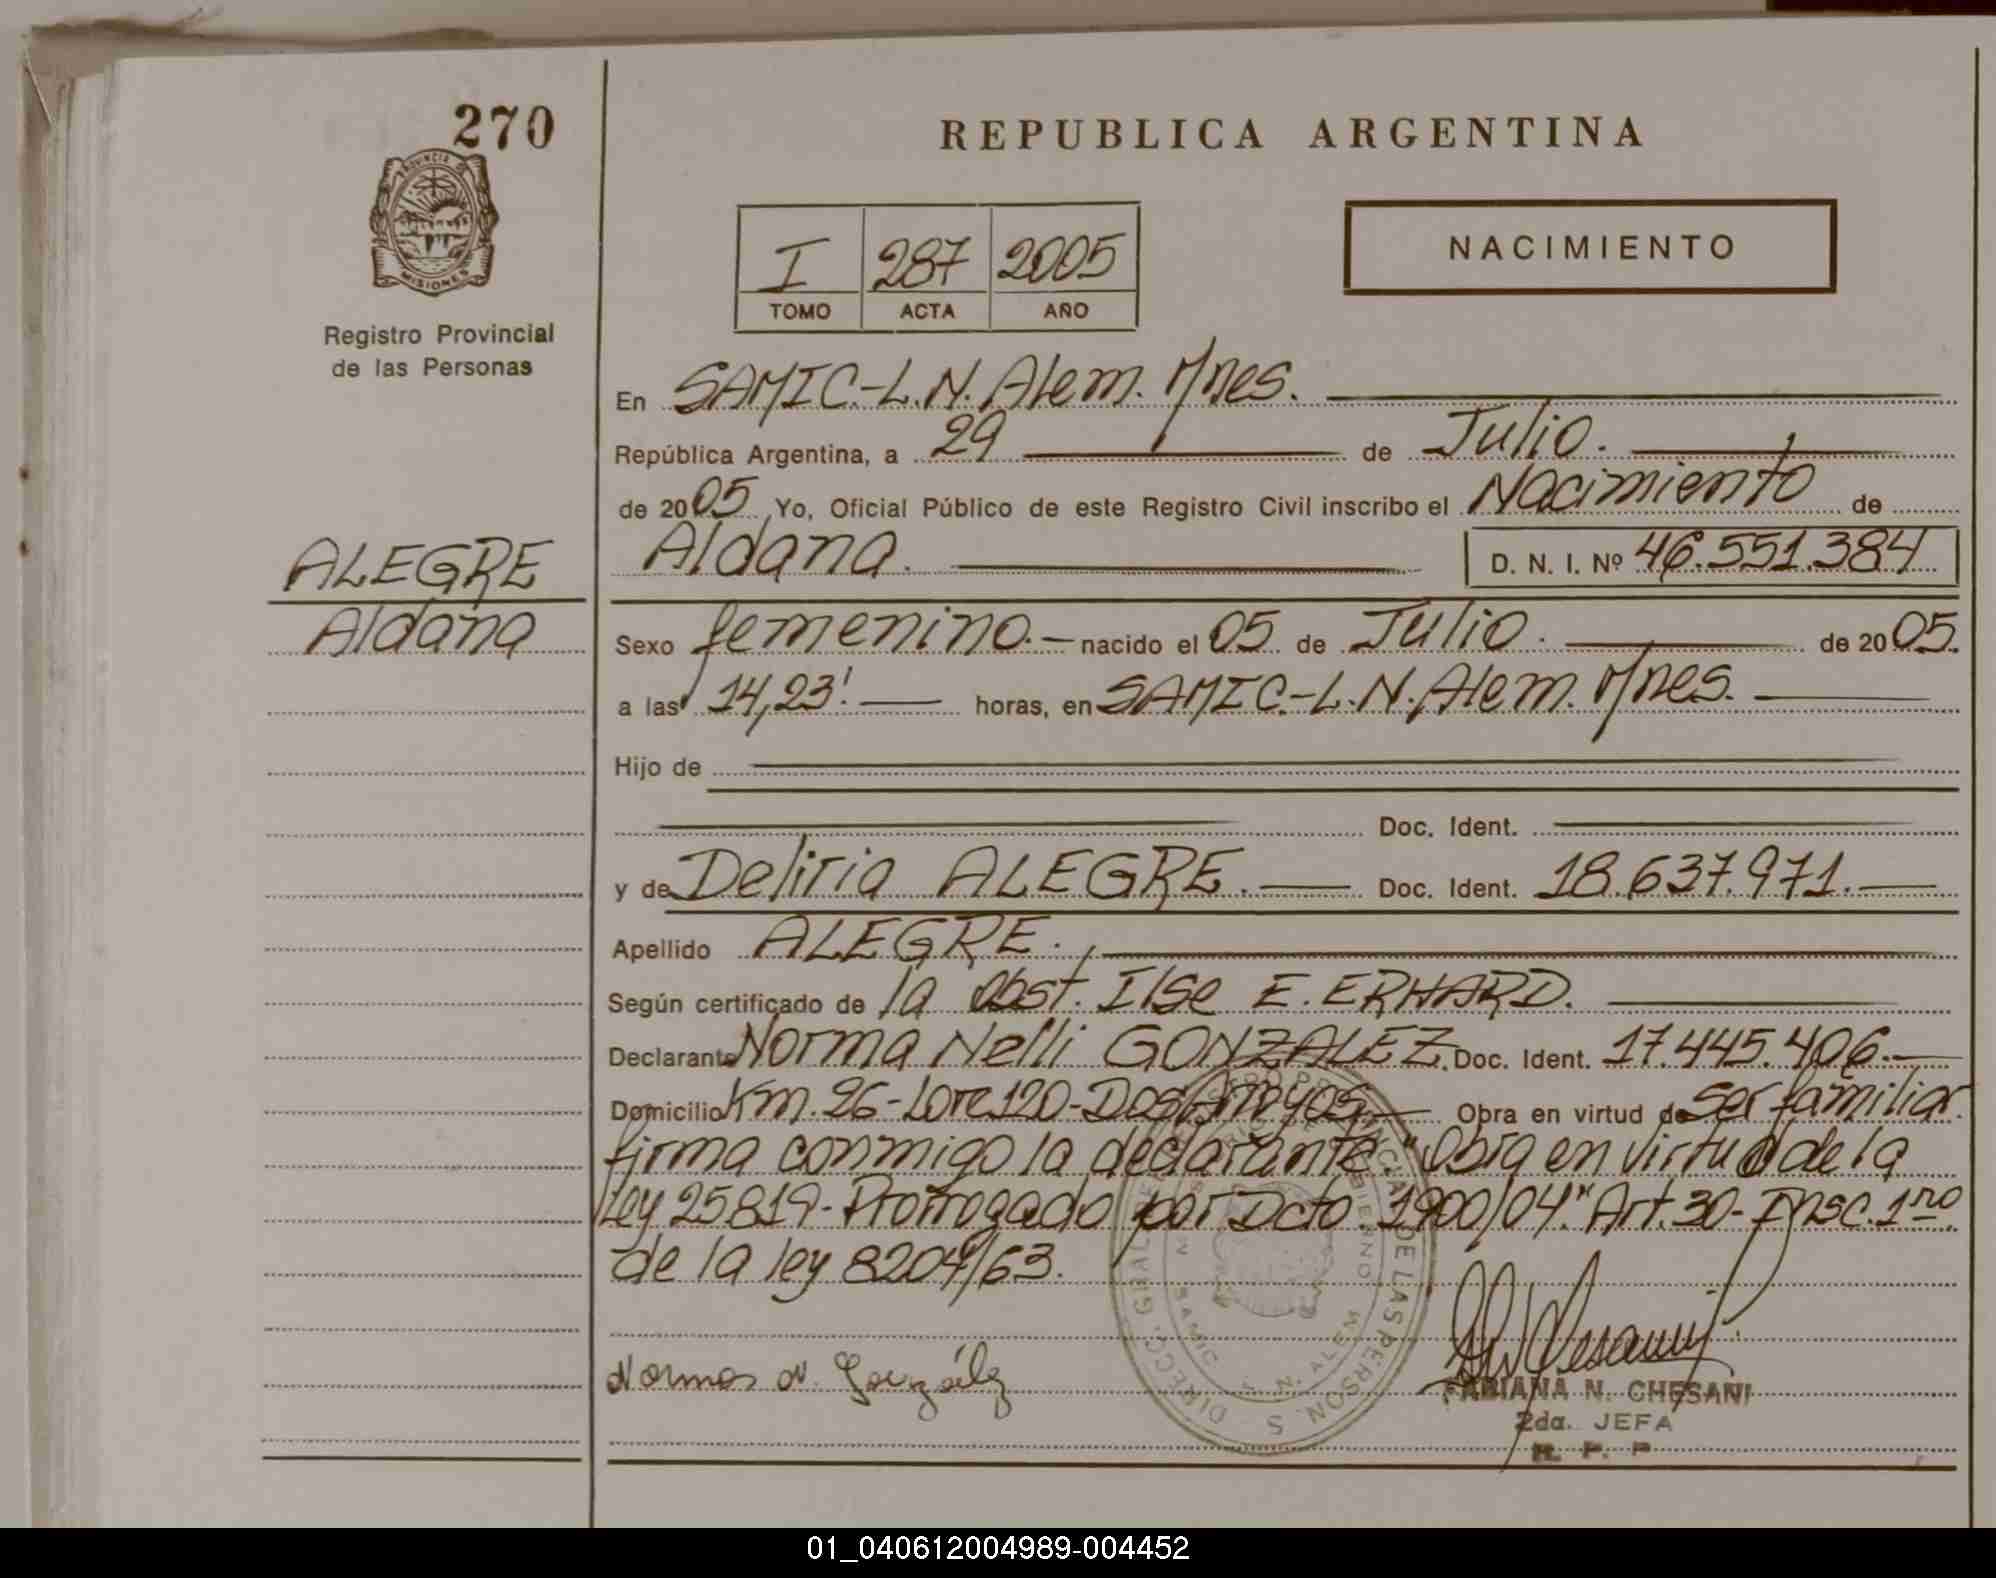 270
REPUBLICA ARGENTINA
PROVINCIA DE
MISIONES
Registro Provincial
de las Personas
I 287 2005
TOMO ACTA AÑO
NACIMIENTO
En SAMIC.-L.N.Alem. Mnes.
República Argentina, a 29 de Julio.
de 2005 Yo, Oficial Público de este Registro Civil inscribo el Nacimiento de
Aldana. D. N. I. Nº 46.551.384
ALEGRE
Aldana
Sexo femenino.- nacido el 05 de Julio. de 2005.
a las 14,23' horas, en SAMIC.-L.N.Alem. Mnes.
Hijo de
Doc. Ident.
y de Deliria ALEGRE. Doc. Ident. 18.637.971.
Apellido ALEGRE.
Según certificado de la obst. Ilse E. ERHARD.
Declarante Norma Nelli GONZALEZ. Doc. Ident. 17.445.406.
Domicilio Km. 26-Lote 120-Dos Arroyos. Obra en virtud de Ser familiar.
firma conmigo la declarante." Obra en virtud de la
Ley 25819-Prorrogado por Dcto 1900/04." Art. 30-Insc. 1ro
de la ley 8204/63.
Norma N. González
FABIANA N. CHESANI
2da. JEFA
R. P. P
01_040612004989-004452